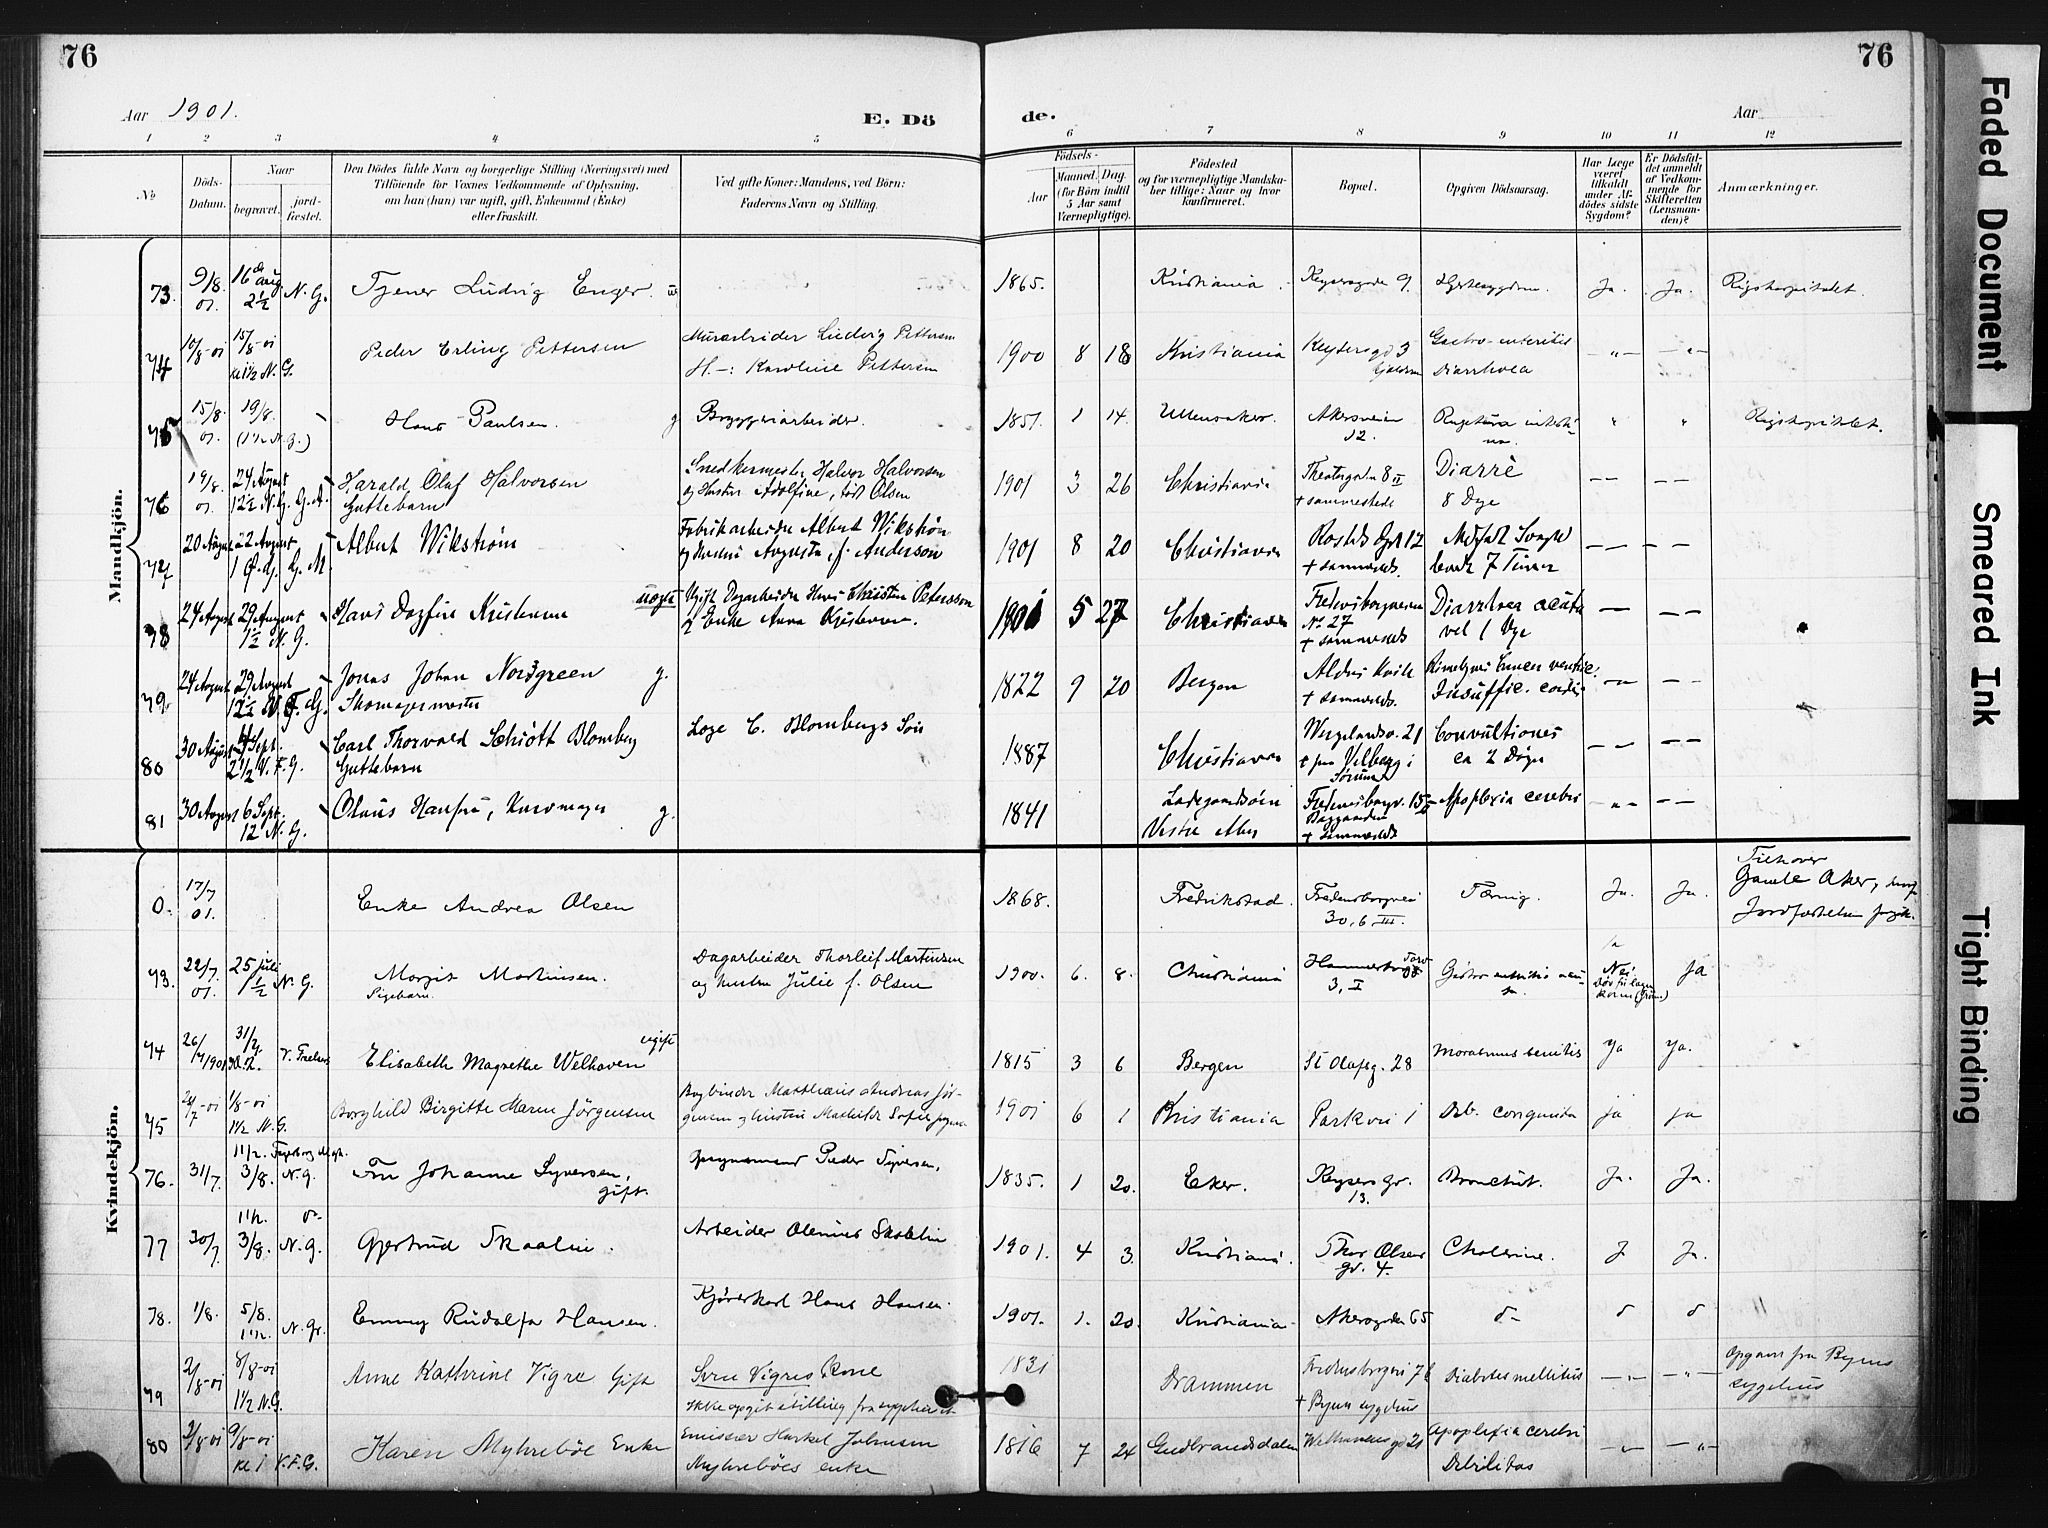 76
76
Aar 1901.
E. Dö
de.
Aar
1 2 3 4 5 6 7 8 9 10 11 12
No
Döds-Datum.
Naar
begravet.
jord-fæstet.
Den Dödes fulde Navn og borgerlige Stilling (Næringsvei) med
Tilföiende for Voxnes Vedkommende af Oplysning,
om han (hun) var ugift, gift, Enkemand (Enke)
eller fraskilt.
Ved gifte Koner: Mandens, ved Börn:
Faderens Navn og Stilling.
Födsels-
Aar
Maaned. Dag.
(for Börn indtil
5 Aar samt
Værnepligtige).
Födested
og for værnepligtige Mandska-
ber tillige: Naar og hvor
konfirmeret.
Bopæl.
Opgiven Dödsaarsag.
Har Læge
været
tilkaldt
under Af-
dödes sidste
Sygdom?
Er Dödsfal-
det anmeldt
af Vedkom-
mende for
Skifteretten
(Lensman-
den)?
Anmærkninger.
Mandkjön.
73. 9/8 01. 16de aug. 2½ N. G. Tjener Ludvig Enger. u 1865. Kristiania. Keysersgaden 9. Hjertesygdom. Ja. Ja. Rigshospitalet.
74 10/8-01 15/8-01 kl 1½ N. G. Peder Erling Pettersen Murarbeider Ludvig Pettersen
H.-: Karoline Pettersen 1900 8 18 Kristiania Keysersgd 3 Gastro-enteritis
Diarrhoea -"- -"-
75 15/8. 01. 19/8. (1½ N. G.) Hans Paulsen. g Bryggeriarbeider. 1851. 1 14. Ullensaker. Akersveien
12. Ruptura intesti-
na. " " Rigshospitalet.
76 19/8. 01. 24 August 12½ N. G. G. A. Harald Olaf Halvorsen
Guttebarn Snedkermester Halvor Halvorsen
og Hustru Adolfine, född Olsen 1901 3 26 Christiania Theatergaden 8 II
+ sammesteds Diarrè
8 Dge -- --
77 20 August 22 August 1 G. G. M. Albert Wikström Fabrikarbeider Albert Wikström
og Hustru Augusta f. Anderson 1901 8 20 Christiania Rosteds Gd. 12
+ sammesteds. Medfødt Svag
7 Timer -- --
78 24 August 29 August 1½ N. G. Hans Dagfin Kristensen uægte Ugift Dagarbeider Hans Christen Petersson
og Enke Anna Kristensen. 1901 5 27 Christiania Fredensborgveien
No 27
+ sammesteds Diarrhoea acuta
vel 1 Dge -- --
79 24 August 29 August 12½ V. F. G. Jonas Johan Nordgreen g.
Skomagermester 1822 9 20 Bergen
+ sammesteds. Insuffic. cordis -- --
80 30 August 4 Sept. 2½ V. F. G. Carl Thorvald Schiött Blomberg
Guttebarn Loge C. Blombergs Søn 1887 Christiania Wergelandsv. 21
+ paa Velberg i
Sørum Convultiones
ca 2 Døgn -- --
81 30 August 6 Sept. 12 N. G. Olaus Hansen, Kurvmager g. 1841 Ladegaardsøen
Vestre Aker Fredensborgv. 15
Baggaarden
+ sammesteds Apoplexia cerebri -"- --
Kvindekjön.
0. 17/7 01. Enke Andrea Olsen 1868. Fredrikstad. Fredensborgveien
30, 6, III. Tæring. Ja. Ja. Gamle Aker, hvor
Jordfæstelsen foregik.
73. 22/7 01. 25 juli 1½ N. G. Margit Martinsen.
Pigebarn. Dagarbeider Thorleif Martinsen
og hustru Julie f. Olsen 1900. 6. 8. Christiania Hammersborg Torv
3, I Ja
74 26/7 1901 31/7 V. Frelsers Elisabeth Magrethe Welhaven ugift 1815 3 6 Bergen St Olafsg. 28 Marasmus senilis Ja Ja.
75 1/8-01 1½ N. G. Borghild Birgitte Maren Jörgensen Bogbinder Matthæus Andreas Jör-
gensen og hustru Mathilde Sofie 1901 6 1 Kristiania Parkvei 1 Deb. congenita ja ja
76. 31/7. 1½. 3/8. N. G. Fru Johanne Syversen,
gift. Peder Syversen. 1835. 1 20. Eker. Keysers Gr.
13. Bronchit. Ja. Ja.
77 30/7 1½. 3/8. N. G. Gjertrud Skoglin. Arbeider Olenius Skoglin 1901. 4 3. Kristiania. Thor Olsens
Gr. 4. Cholerine. J Ja.
78. 1/8. 5/8. 1½. N. Gr. Emmy Rudolfa Hansen. Kjörerkarl Hans Hansen. 1901. 1. 20. Kristiania Akersgaden 65
79 2/8-01 8/8-01 1½ N. G. Anne Kathrine Vigre Gift Sven Vigres Kone
Ikke opgit stilling fra sygehuset 1831 Drammen Fredensborgvei 76
+ Byens sygehus Diabetes mellitus -"- -"- Opgave fra Byens
sygehus
80 3/8-01 9/8-01 kl 1 V. F. G. Karen Myhreböe Enke Emissær Harkel Johnsen
Myhreböes enke 1816 7 24 Gudbrandsdalen Welhavensgd 21 Apoplexia cerebri
Debilitas -"- -"-
Faded Document
Smeared Ink
Tight Binding